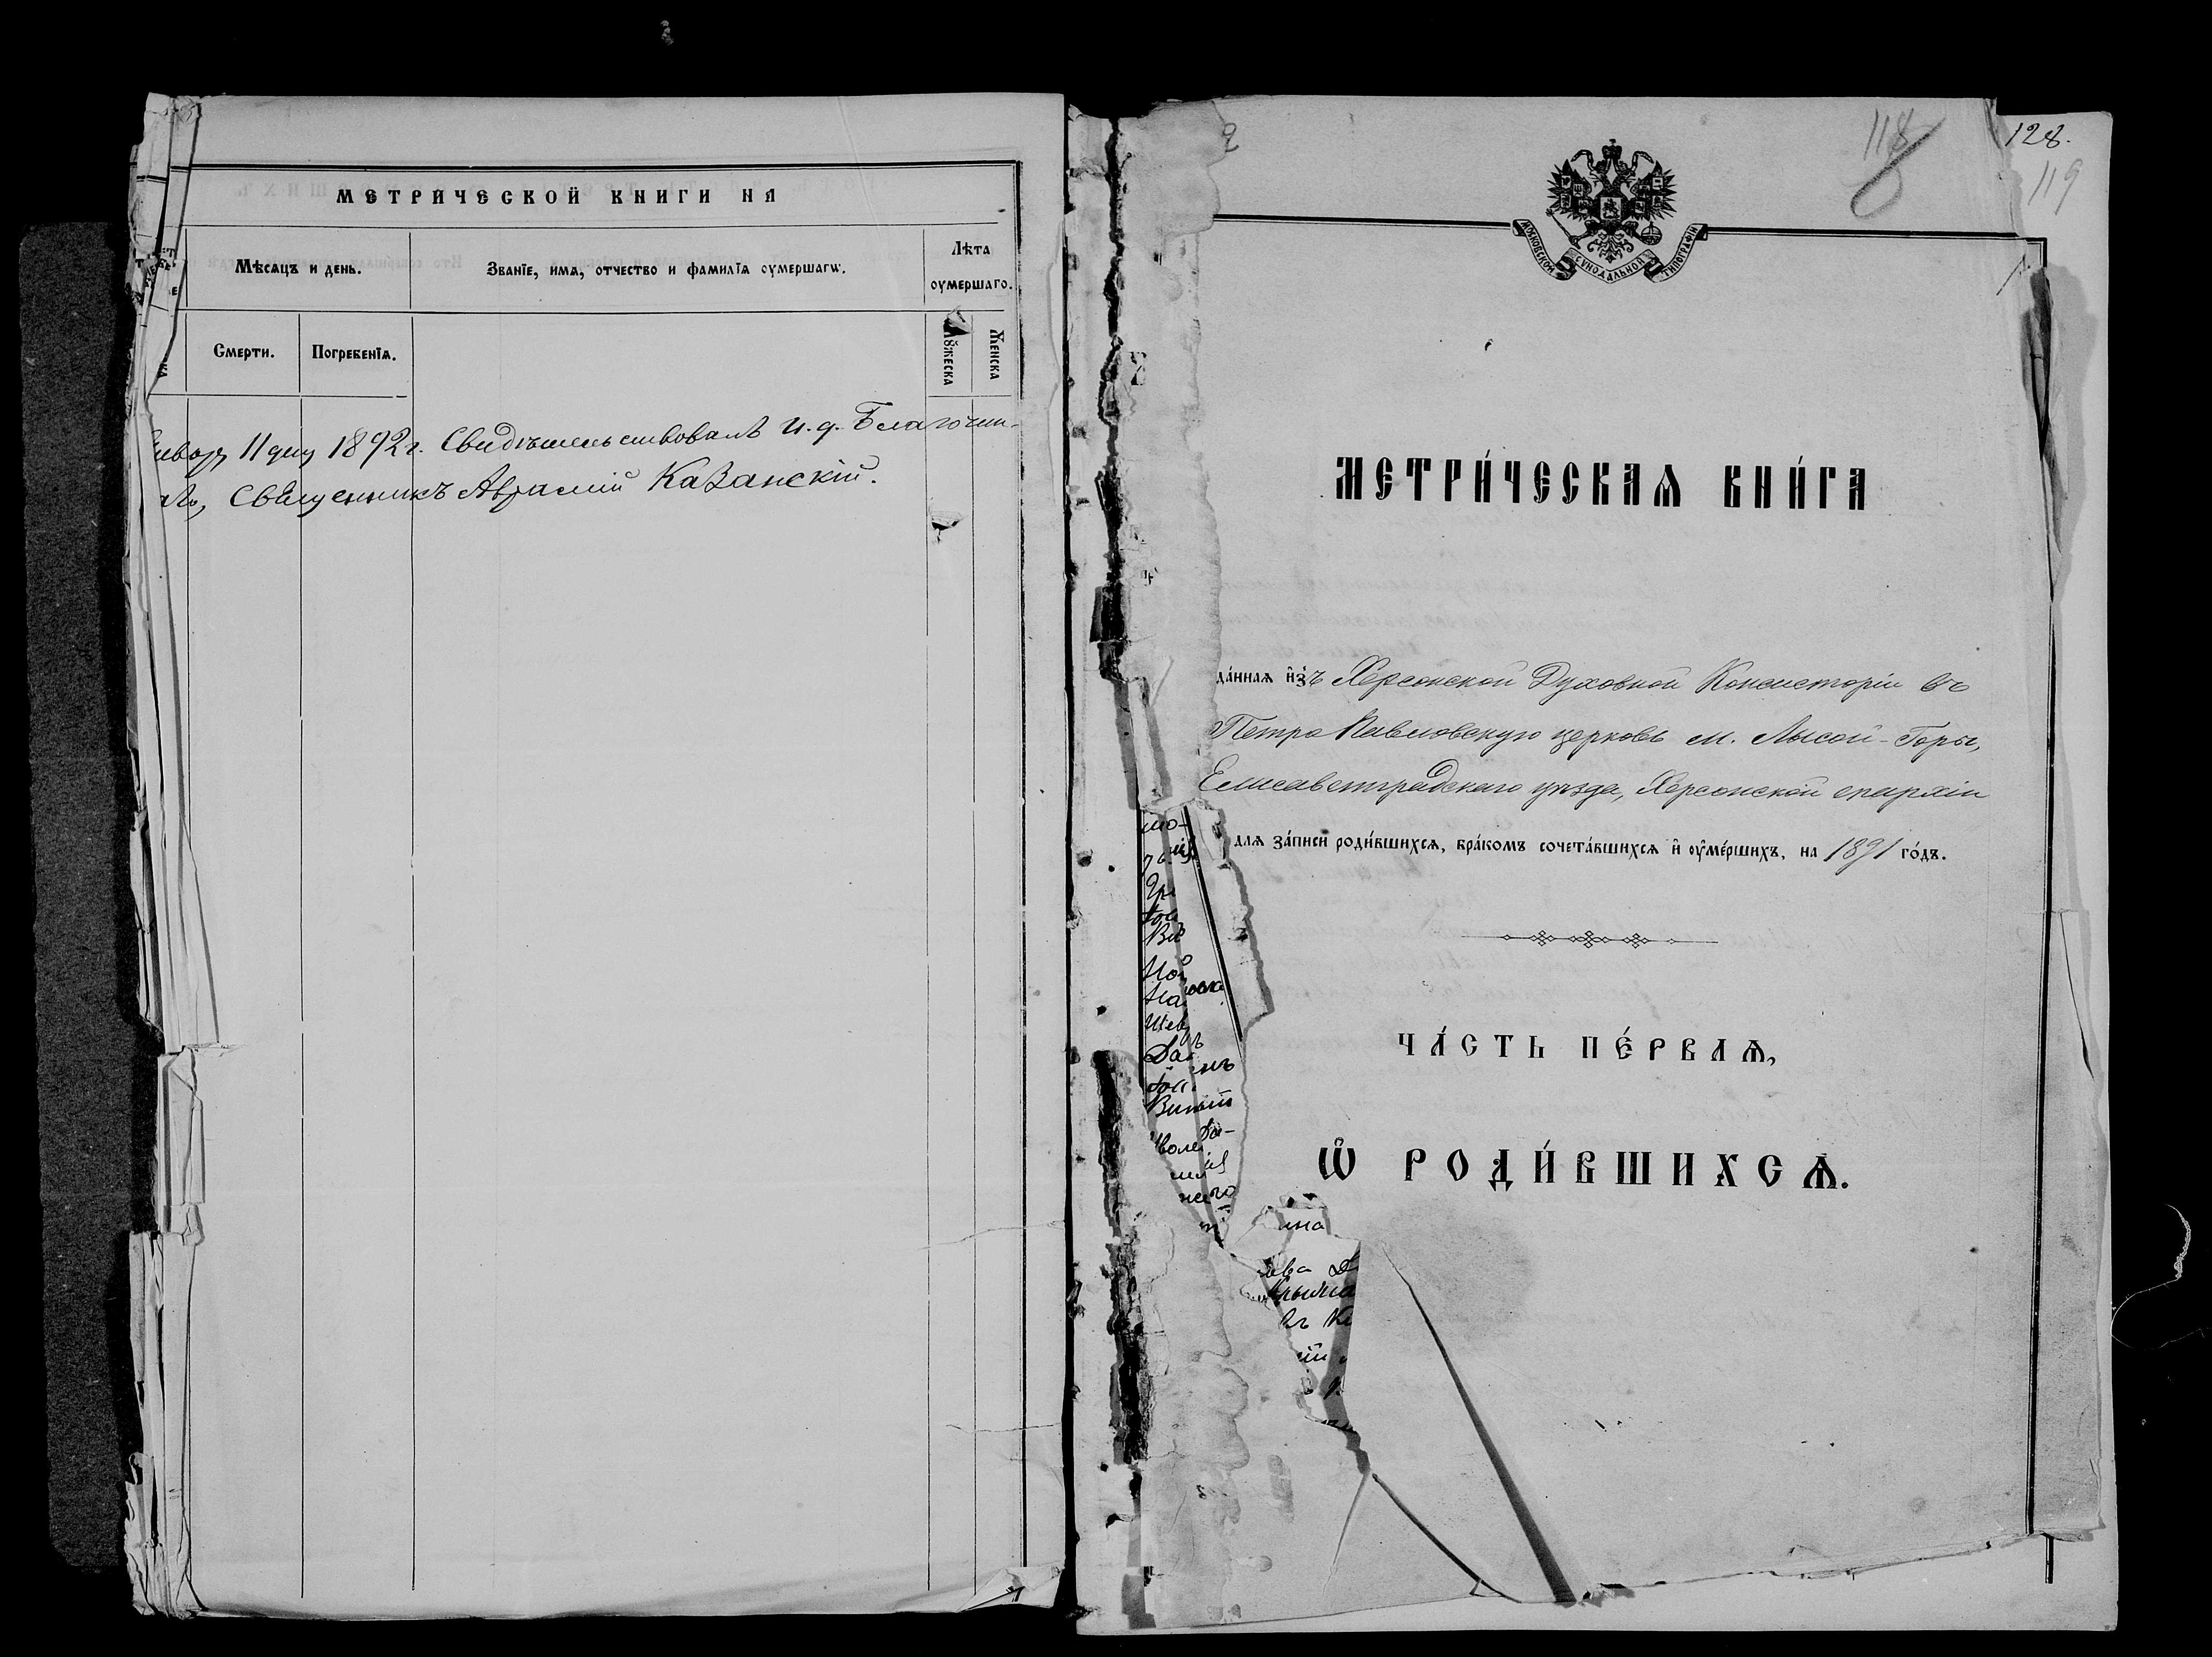 МЕТРИЧЕСКОЙ КНИГИ НА
Мѣсяцъ и день.
Званїе, имѧ, отчество и фамилїѧ оумершагѡ.
Лѣта
оумершаго.
Смерти.
Погребенїѧ.
Мꙋжеска
Женска
11 дня 1892 г. Свидѣтельствовалъ и. д. Благочин-
Священникъ Аврамій Казанскій.
118
128.
119
МОСКОВСКОЙ СѴНОДАЛЬНОЙ ТИПОГРАФІИ
1.
МЕТРИ́ЧЕСКАѦ КНИ́ГА
да́ннаѧ и҆зъ Херсонской Духовной Консисторіи въ
Петро Павловскую церковь м. Лысой-Горы,
Елисаветградскаго уѣзда, Херсонской епархіи
длѧ за́писи роди́вшихсѧ, бра́комъ сочета́вшихсѧ и҆ оу҆ме́ршихъ, на 1891 го́дъ.
ЧА́СТЬ ПЕ́РВАѦ,
Ѡ҆ РОДИ́ВШИХСѦ.